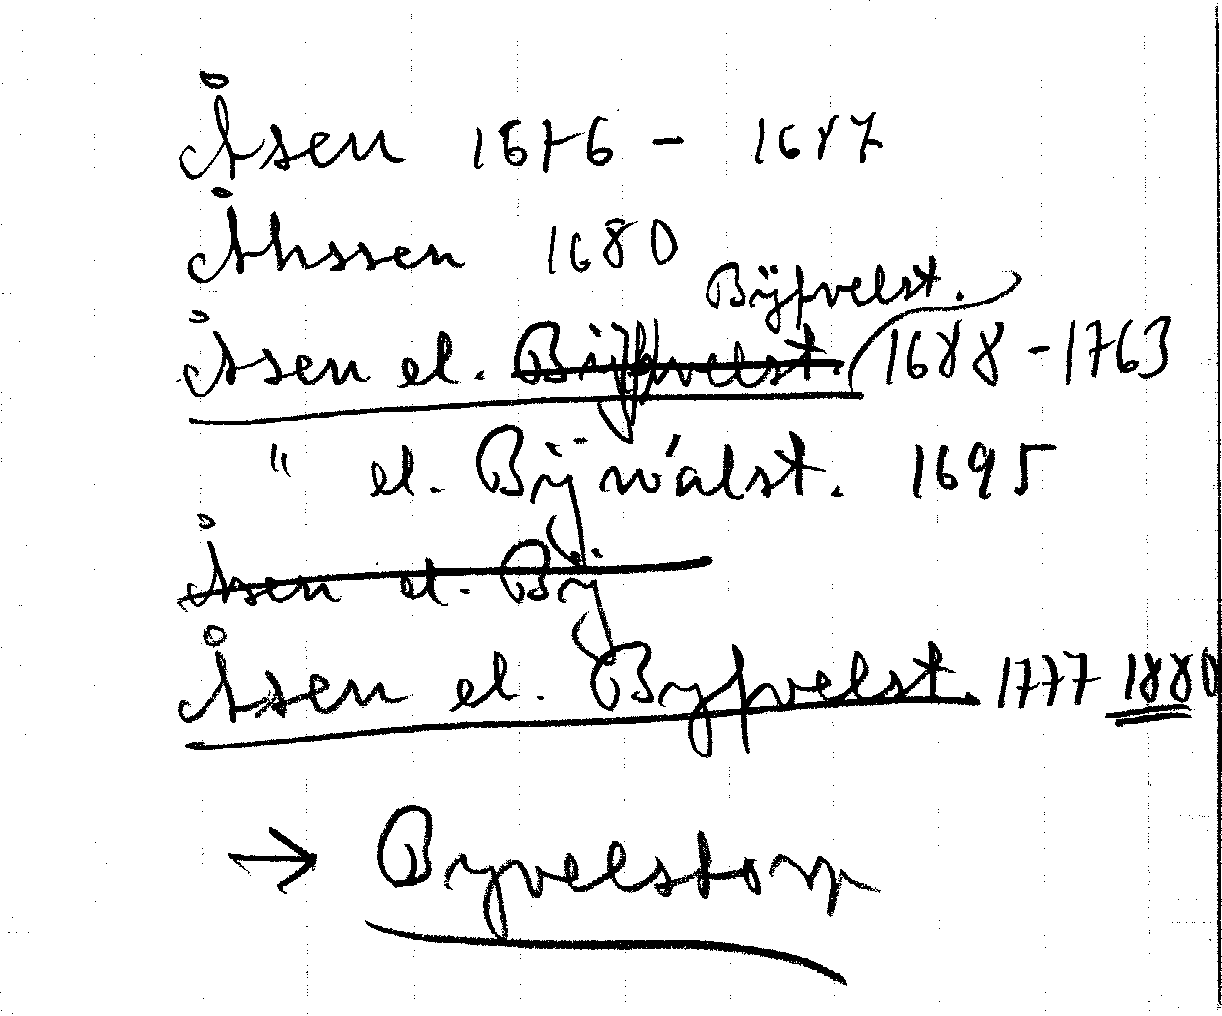 Åsen 1676 - 1687
Åhssen 1680
Byfvelst.
Åsen el. Byfvelst. 1688 - 1763
" el. Bÿwälst. 1695
Åsen el. By
Åsen el. Byfvelst. 1777 1880
→ Byvelstorp